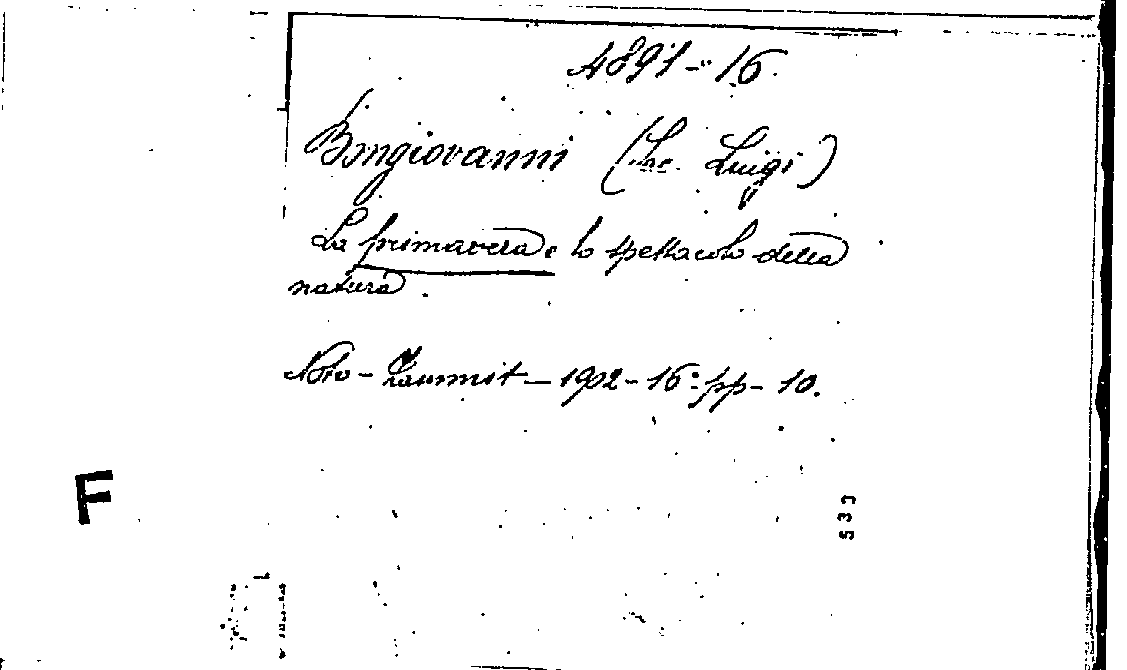 4891-16
Bongiovanni (Sac. Luigi)
La primavera e lo spettacolo della
natura.
Noto - Zammit - 1902 - 16° pp - 10.
F
533